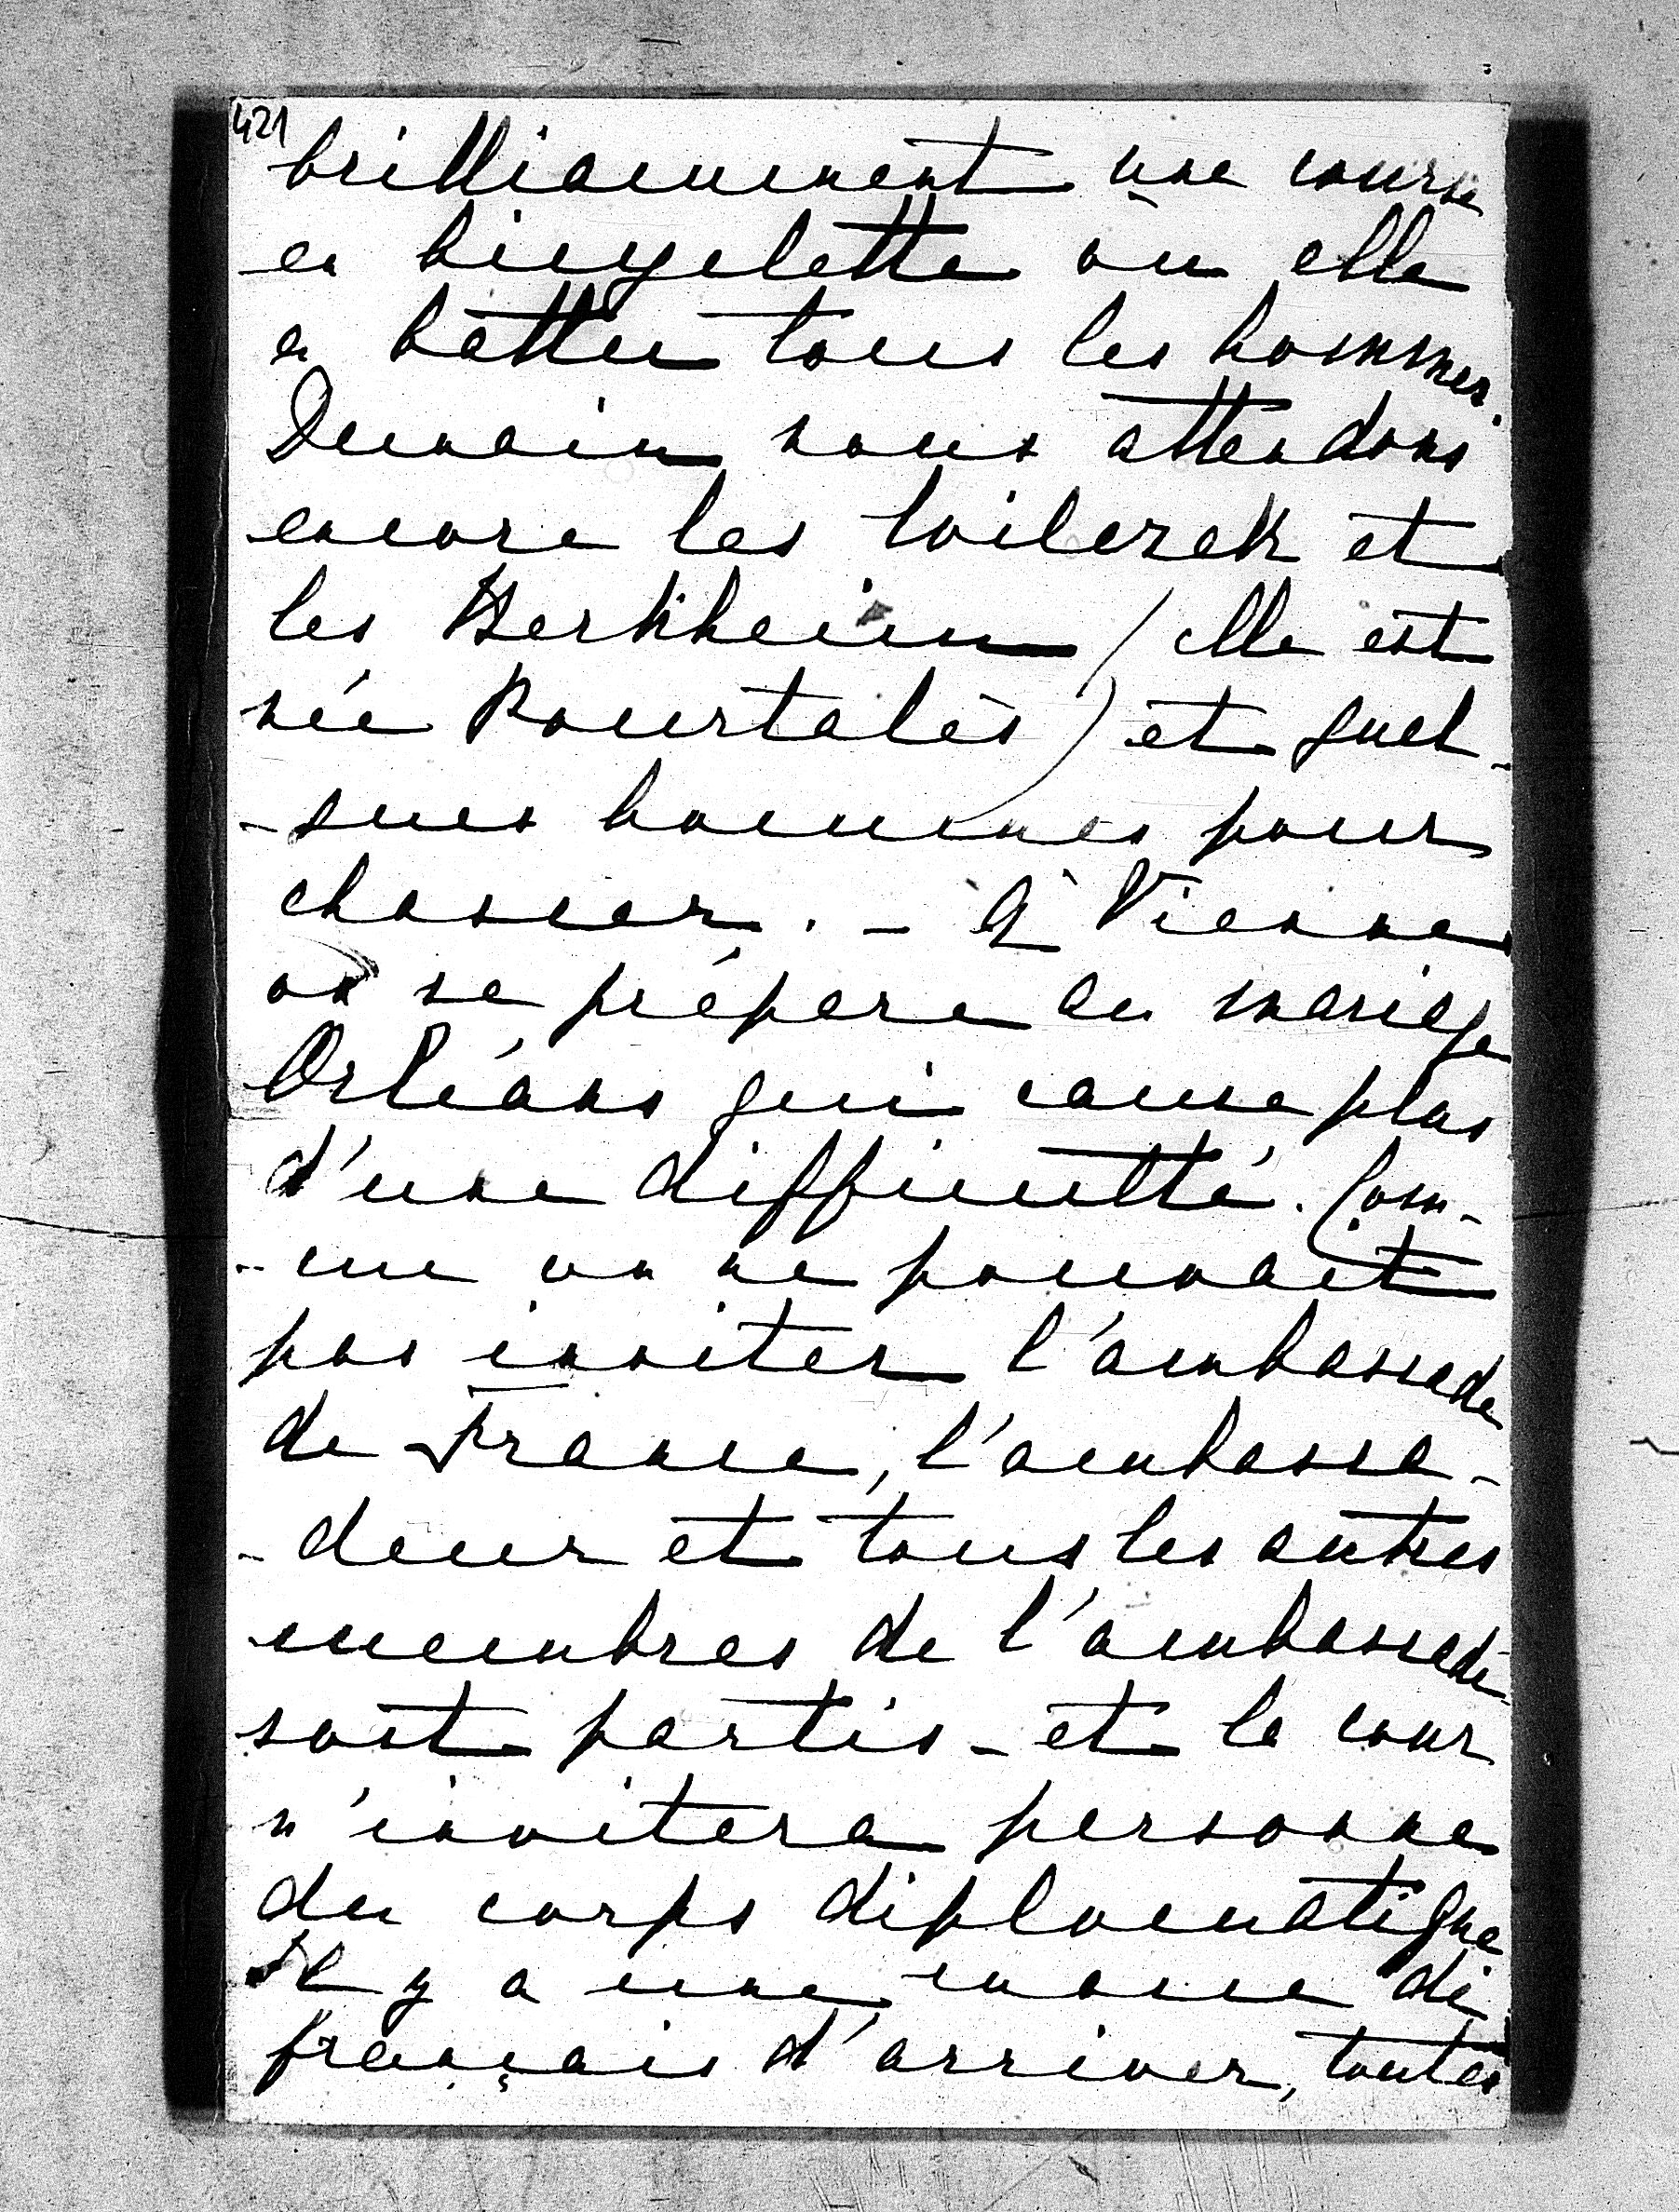 421
brilliamment une course
en bicyclette où elle
a battu tous les hommes.
Demain nous attendons
encore les Wilczek et
les Berkheim (elle est
née Pourtalès) et quel-
-ques hommes pour
chasser. - A Vienne
on se prépare au mariage
Orléans qui cause plus
d'une difficulté. Com-
-me on ne pouvait
pas inviter l'ambassade
de France, l'ambassa-
-deur et tous les autres
membres de l'ambassade
sont partis - et la cour
n'invitera personne
du corps diplomatique
Il y a une masse de
français d'arriver, toutes